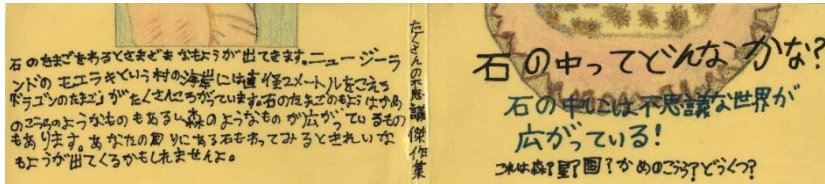 石のたまごをわるとさまざまなもようが出てきます。ニュージーラ
ンドのモエラキという村の海岸には直径2メートルをこえる
「ドラゴンのたまご」がたくさんころがっています。石のたまごのもようはかめ
のこうらのようなものもあるし森のようなものが広がっているもの
もあります。あなたの周りにある石もわってみるときれいな
もようが出てくるかもしれませんよ。
たくさんの不思議傑作集
石の中ってどんなかな?
石の中には不思議な世界が
広がっている!
これは森?星?国?かめのこうら?どうくつ?